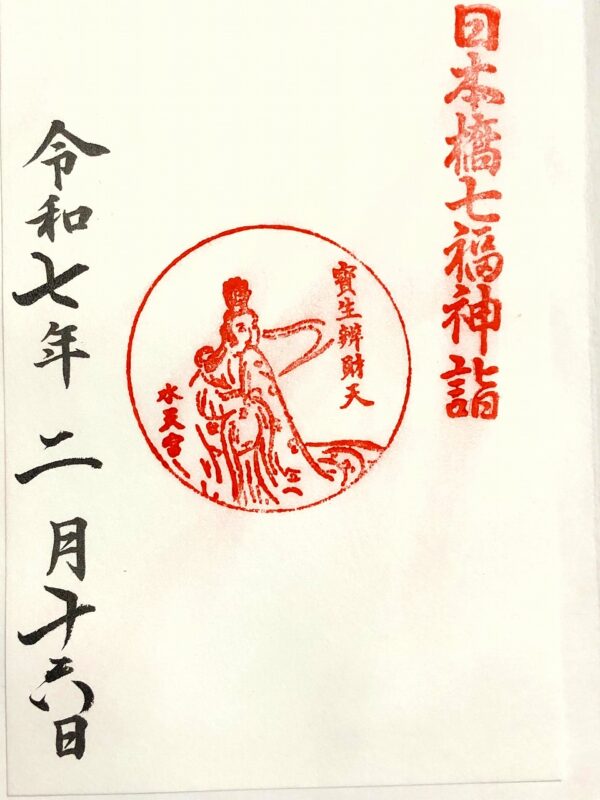 日本橋七福神詣
寳生辨財天
水天宮
令和七年二月十六日